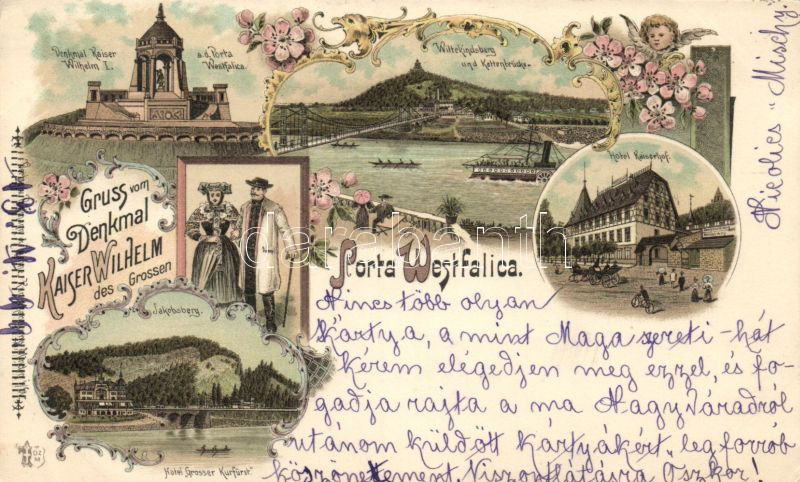 Denkmal Kaiser
Wilhelm I.
a.d. Porta
Westfalica.
Wittekindsberg
und Kettenbrücke.
Hôtel Kaiserhof.
Gruss vom
Denkmal
KAISER WILHELM
des Grossen
Porta Westfalica.
Jakobsberg.
Hôtel "Grosser Kurfürst."
Nincs több olyan
kártya, a mint Maga szereti - hát
kérem elégedjen meg ezzel, és fo-
gadja rajta a ma Nagy Váradról
utánom küldött kártyákért, legforróbb
köszönetemet. Viszontlátásra Oszkár!
darabanth